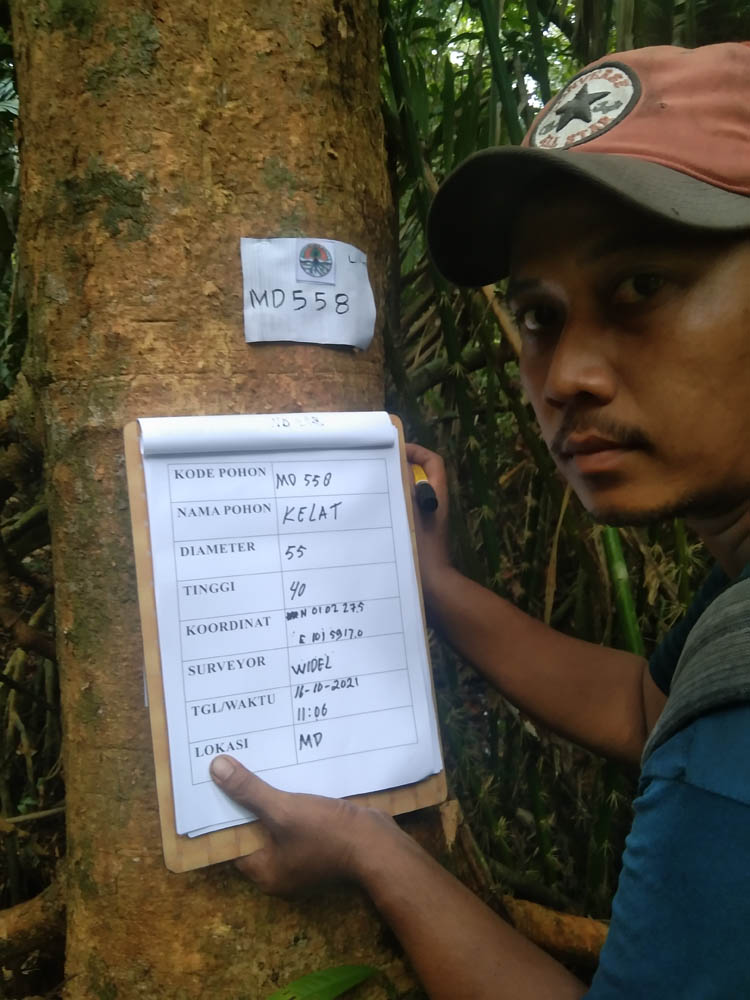 ALL STAR
MD558
KODE POHON MD 558
NAMA POHON KELAT
DIAMETER 55
TINGGI 40
KOORDINAT N 01 02 27.5
E 101 59 17.0
SURVEYOR WIDEL
TGL/WAKTU 16-10-2021
11:06
LOKASI MD